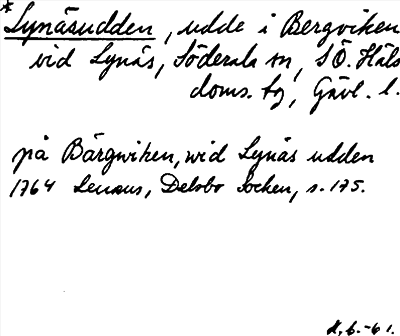 *Lynäsudden, udde i Bergviken
vid Lynäs, Söderala sn, SÖ. Häls
doms. tg, Gävl. l.
på Bärgwiken, wid Lynäs udden
1764 Lenæus, Delsbo Socken, s. 175.
6.-61.